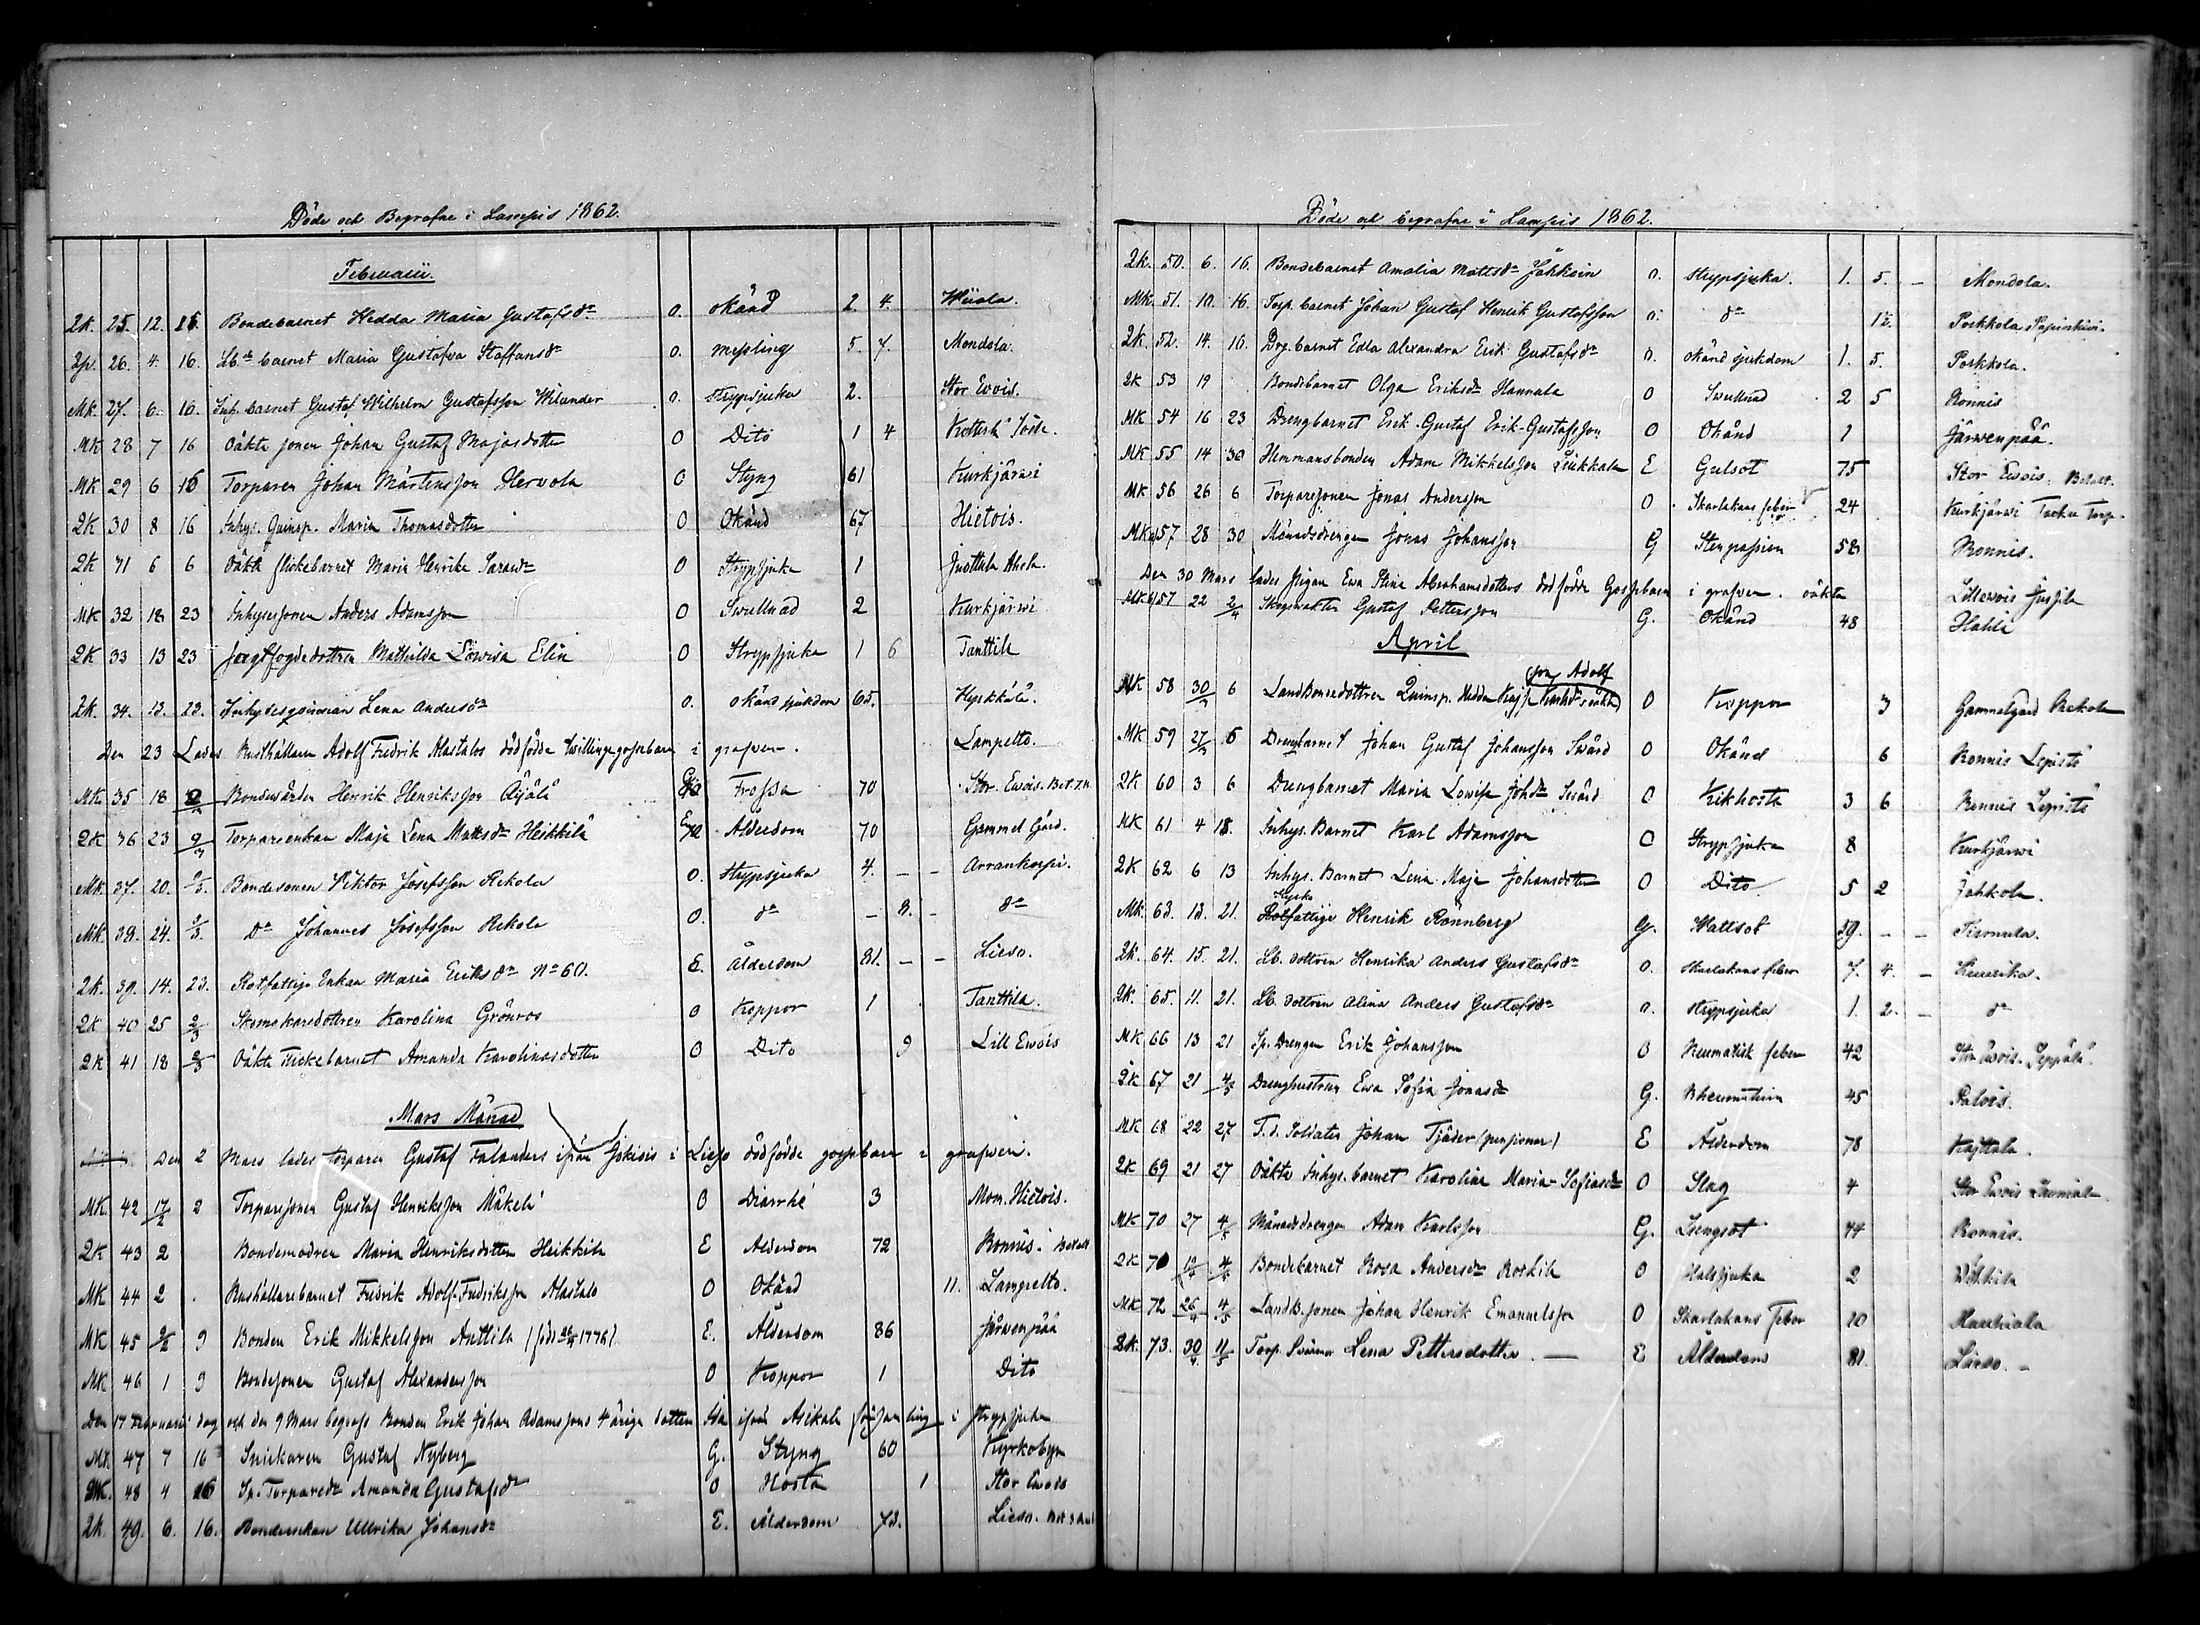 Döde och Begrafne i Lampis 1862.
Februarii.
2K. 25. 12. 16. Bondebarnet Hedda Maria Gustafsdr O. okänd 2. 4. Wiiala.
26. 4. 16. barnet Maria Gustafva Staffansdr O. messling 5. 7. Mondola.
MK. 27. 6. 16. Inh. barnet Gustaf Wilhelm Gustafsson Wilander O. Strypsjuka 2. Stor Evois.
MK 28 7 16 Oäkta sonen Johan Gustaf Majasdotter O Dito 1 4
MK 29 6 16 Torparen Johan Mårtensson Hervola O Styng 61 Kurkjärwi
2K 30 8 16 Inhys. Quinsp. Maria Thomasdotter O Okänd 67 Hietois.
2K 31 6 6 Oäkta flickebarnet Maria Henrika Saraudr O Strypsjuka 1 Juttila Ahola.
MK 32 18 23 Inhysessonen Anders Adamsson O Swullnad 2 Kurkjärwi
2K 33 13 23 Jagtfogdedottren Mathilda Lowisa Elin O Strypsjuka 1 6 Tanttila
2K. 34. 13. 23. Inhysesqvinnan Lena Andersdr O. okänd sjukdom 65.
Den 23 Lades Rusthållaren Adolf Fredrik Alastalos dödfödde twillinge gossebarn i grafwen. Lampelto.
MK 35 18 2/3 Bondeåldr. Henrik Henriksson Äijälä Frossa 70 Stor Ewois.
2K 36 23 9/3 Torpareenkan Maja Lena Mattsdr Heikkilä Ålderdom 70 Gammel Gård.
MK. 37. 20. 2/3. Bondesonen Viktor Josefsson Rekola O. Strypsjuka 4. — — Arrankorpi.
MK. 38. 24. 2/3. Dr Johannes Josefsson Rekola O. dr — 8. — dr
2K. 39. 14. 23. Rotfattige Enkan Maria Eriksdr No 60. E. Ålderdom 81. — — Lieso.
2K 40 25 2/3 Skomakaredottren Karolina Grönroos O Koppor 1 Tanttila.
2K 41 18 2/3 Oäkta Flickebarnet Amanda Karolinasdotter O Dito 9 Lill Ewois
Mars Månad
Den 2 Mars lades torparen Gustaf Falanders ifrån Jokisis i Lieso dödfödde gossebarn i grafwen.
MK 42 17/2 2 Torparesonen Gustaf Henriksson Mäkelä O Diarrhé 3 Mom. Hietois.
2K 43 2 Bondemodren Maria Henriksdotter Heikkilä E Ålderdom 72 Ronnis.
MK 44 2 . Rusthållarebarnet Fredrik Adolf Fredriksson Alastalo O Okänd 11. Lampelto.
MK 45 2/2 9 Bonden Erik Mikkelsson Anttila E. Ålderdom 86 Järwenpää
MK 46 1 9 Bondesonen Gustaf Alexandersson O Koppor 1 Dito
Den 17 Februarii dog och den 9 Mars begrofs Bonden Erik Johan Adamssons 4 åriga dotter Ida ifrån Asikala församling i Strypsjuka
MK 47 7 16 Snickaren Gustaf Nyberg G. Styng 60 Kyrkobyn
48 4 16 Sp. Torparedr Amanda Gustafsdr O Hosta 1 Stor Ewois
2K. 49. 6. 16. Bondeenkan Ullrika Johansdr E. Ålderdom 73. Lieso.
Döde och begrafne i Lampis 1862.
2K. 50. 6. 16. Bondebarnet Amalia Mattsdr Jahkoin O. Strypsjuka. 1. 5. — Mondola.
MK. 51. 10. 16. Torp. barnet Johan Gustaf Henrik Gustafsson O. dr Porkkola
2K. 52. 14. 16. Drg. barnet Edla Alexandra Erik Gustafsdr O. okänd sjukdom 1. 5. Porkkola.
2K 53 19 Bondebarnet Olga Eriksdr Hannula O Swullnad 2 5 Ronnis
MK 54 16 23 Drengbarnet Erik Gustaf Erik-Gustafsson O Okänd 1 Järwenpää.
MK 55 14 30 Hemmansbonden Adam Mikkelsson E Gulsot 75 Stor Ewois.
MK 56 26 6 Torparesonen Jonas Andersson O Skarlakans feber 24 Kurkjärwi
MK 57 28 30 Månadsdrengen Jonas Johansson G Stenpassion 58 Ronnis.
Den 30 Mars lades Pigan Ewa Stina Abrahamsdotters dödfödde Gossebarn i grafwen. oäkta Lillewois
MK 57 22 2/4 Skogswaktar Gustaf Pettersson G. Okänd 48 Hahli
April
MK 58 30/3 6 Landbondedottren Quinsp. Hedda son Adolf oäkta O Koppor 3 Gammelgård Rekola
MK 59 27/3 6 Drengbarnet Johan Gustaf Johansson Swärd O Okänd 6 Ronnis Lepistö
2K 60 3 6 Drengbarnet Maria Lowisa Johdr Swärd O Kikhosta 3 6 Ronnis Lepistö
MK 61 4 18. Inhys. Barnet Karl Adamsson O Strypsjuka 8 Kurkjärwi
2K 62 6 13 Inhys. Barnet Lena Maja Johansdotter O Dito 5 2 Jahkola.
MK. 63. 13. 21. Kyrko Rotfattige Henrik Rönnberg G. Wattsot 39. — —
2K. 64. 15. 21. Lb. dottren Henrika Anders Gustafsdr O. Skarlakans feber 7. 4. —
2K. 65. 11. 21. Lb. dottren Alina Anders Gustafsdr O. Strypsjuka 1. 2. — dr
MK 66 13 21 Sp. Drengen Erik Johansson O Reumatisk feber 42 Stor Ewois. Seppälä.
2K 67 21 4/5 Drenghustrun Ewa Sofia Jonasdr G. Rheumatism 45 Palois.
MK 68 22 27 F.d. Soldaten Johan Tjäder (pensioner) E Ålderdom 78
2K 69 21 27 Oäkta Inhys. barnet Karolina Maria-Sofiasdr O Slag 4 Stor Ewois
MK 70 27 4/5 Månadsdrengen Adam Karlsson G. Lungsot 44 Ronnis.
2K 71 4/5 Bondebarnet Rosa Andersdr O Halssjuka 2
MK 72 26/4 4/5 Landb. sonen Johan Henrik Emanuelsson O Skarlakans Feber 10
2K. 73. 30/4 11/5 Torp. Lena Pettersdotter. — E Ålderdom 81. Lieso. —